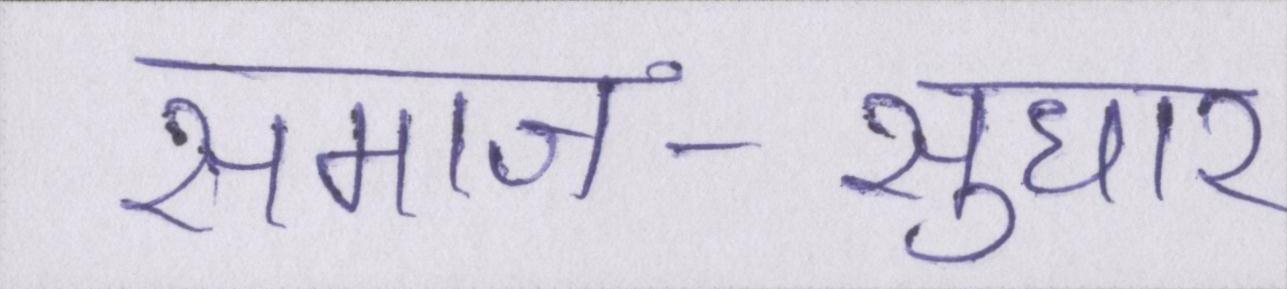 समाजं-सुधार